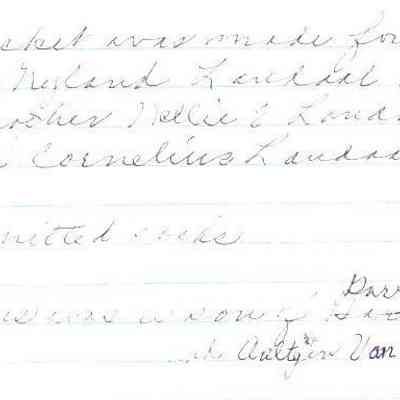 cket was made for
Neyland Landaal
other Nellie E Land
Cornelius Landaa
nitted socks
was a son of
Aultjin Van